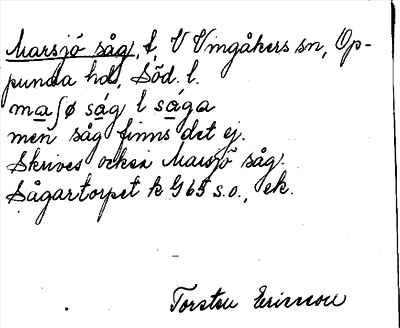 Marsjö såg, t, V Vingåkers sn, Op-
punda hd, Söd. l.
maʃø såg l såga
men såg finns det ej.
Skrives också Marsjö såg.
Sågartorpet k G 65 s.o., ek.
Torsten Ericsson